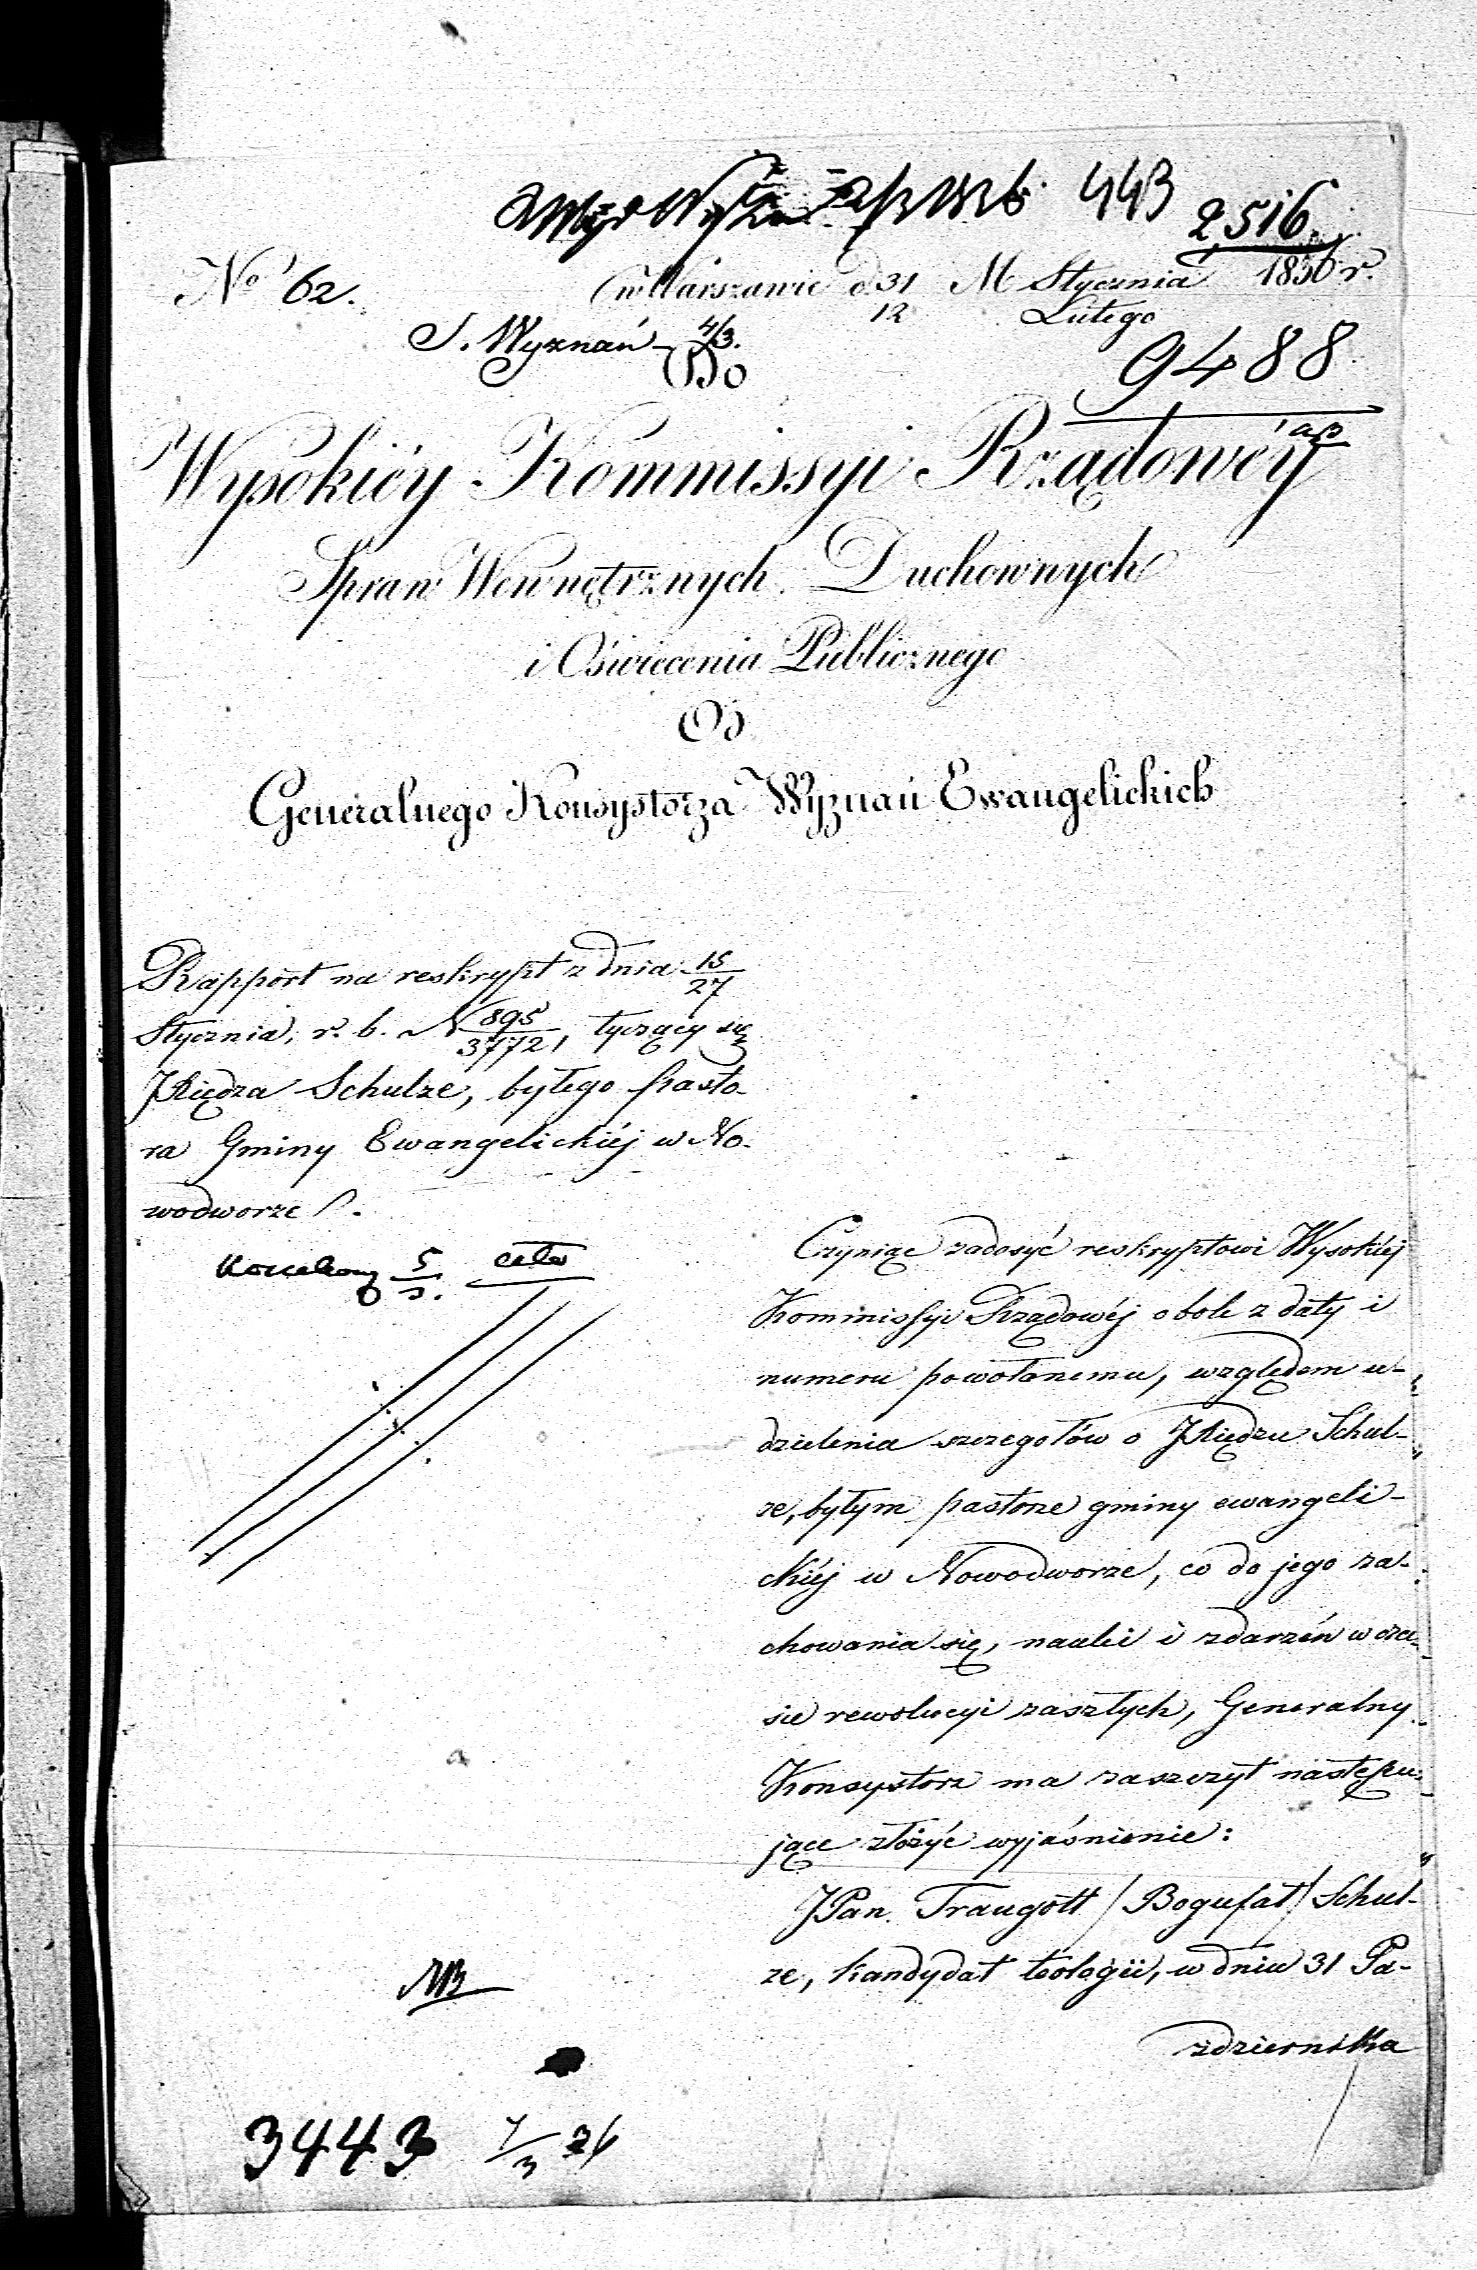 443
2516
No 62.
w Warszawie d. 31 M Stycznia 1836 r.
12 Lutego
S. Wyznań 4/3.
Do
9488
Wysokiéy Kommissyi Rządowéy
Spraw Wewnętrznych Duchownych
i Oświecenia Publicznego
Od
Generalnego Konsystorza Wyznań Ewangelickich
Rapport na reskrypt z dnia 15/27
Stycznia, r. b. N 895/3772, tyczący się
JXiędza Schulze, byłego Pasto-
ra Gminy Ewangelickiéj w No-
wodworze
Czyniąc zadosyć reskryptowi Wysokiéj
Kommissyi Rządowéj obok z daty i
numeru powołanemu, względem u-
dzielenia szczegołów o JXiędzu Schul-
ze, byłym pastorze gminy ewangeli-
ckiéj w Nowodworze, co do jego za-
chowania się, nauki i zdarzeń w cza-
sie rewolucyi zaszłych, Generalny
Konsystorz ma zaszczyt następu-
jące złożyć wyjaśnienie:
JPan Traugott /Bogufał/ Schul-
ze, kandydat teologii, w dniu 31 Pa-
ździernika
3443 7/3 36